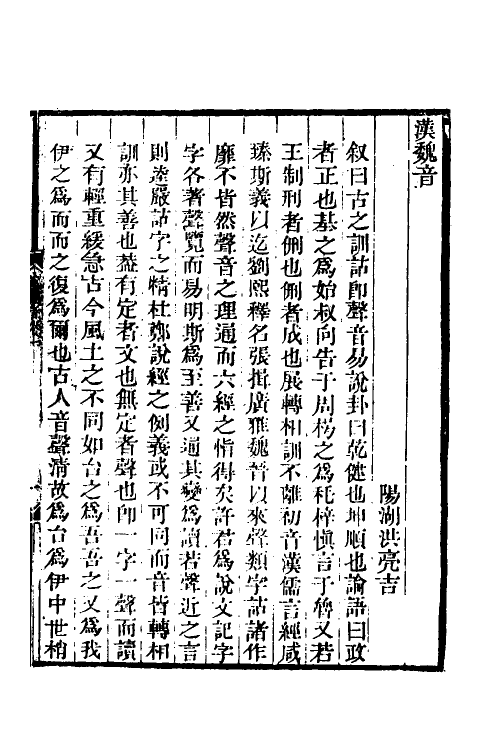 漢魏音
陽湖洪亮吉
叙曰古之訓詁即聲音易說卦曰乾健也坤順也論語曰政
者正也基之為始叔向告于周楊之為秏梓慎言于魯又若
王制刑者侀也侀者成也展轉相訓不離初音漢儒言經咸
臻斯義以迄劉熙釋名張揖廣雅魏晉以來聲類字詁諸作
靡不皆然聲音之理通而六經之恉得矣許君為說文記字
字各著聲覽而易明斯為至善又通其變為讀若聲近之言
則遠嚴詁字之情杜鄭說經之例義或不可同而音皆轉相
訓亦其善也葢有定者文也無定者聲也即一字一聲而讀
又有輕重緩急古今風土之不同如台之為吾吾之又為我
伊之為而而之復為爾也古人音聲清故為台為伊中世稍